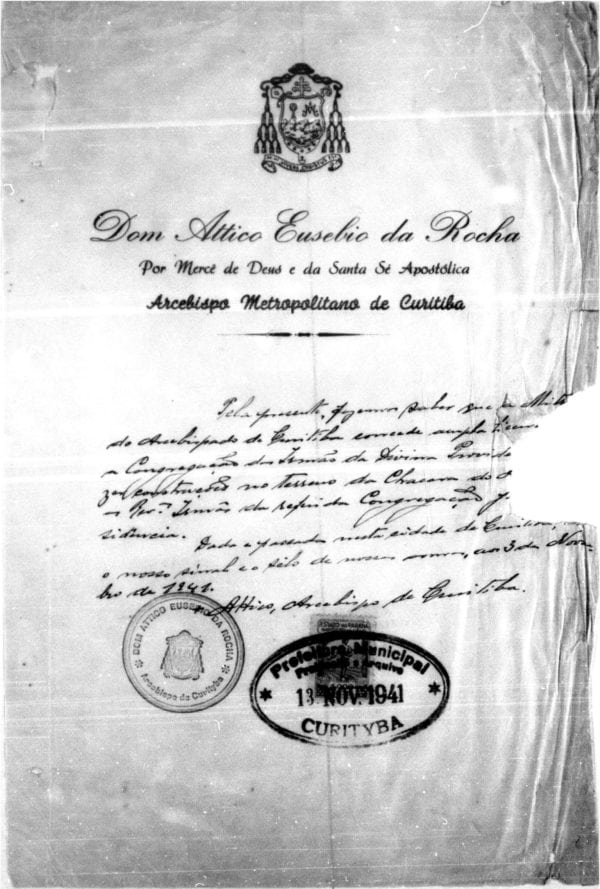 Dom Attico Eusebio da Rocha
Por Mercê de Deus e da Santa Sé Apostólica
Arcebispo Metropolitano de Curitiba
Pela presente, fazemos saber que a Mitra
do Arcebispado de Curitiba concede ampla licen
a Congregação das Irmãs da Divina Provide
zer construções no terreno da Chacara do
as Revas Irmãs da referida Congregação,
sidencia.
Dada e passada nesta cidade de Curitiba,
o nosso sinal e o selo de nossas armas, aos 3 de Novem-
bro de 1941.
Attico, Arcebispo de Curitiba.
DOM ATTICO EUSEBIO DA ROCHA
Arcebispo de Curityba
Prefeitura Municipal
Protocolo e Arquivo
13 NOV. 1941
CURITYBA